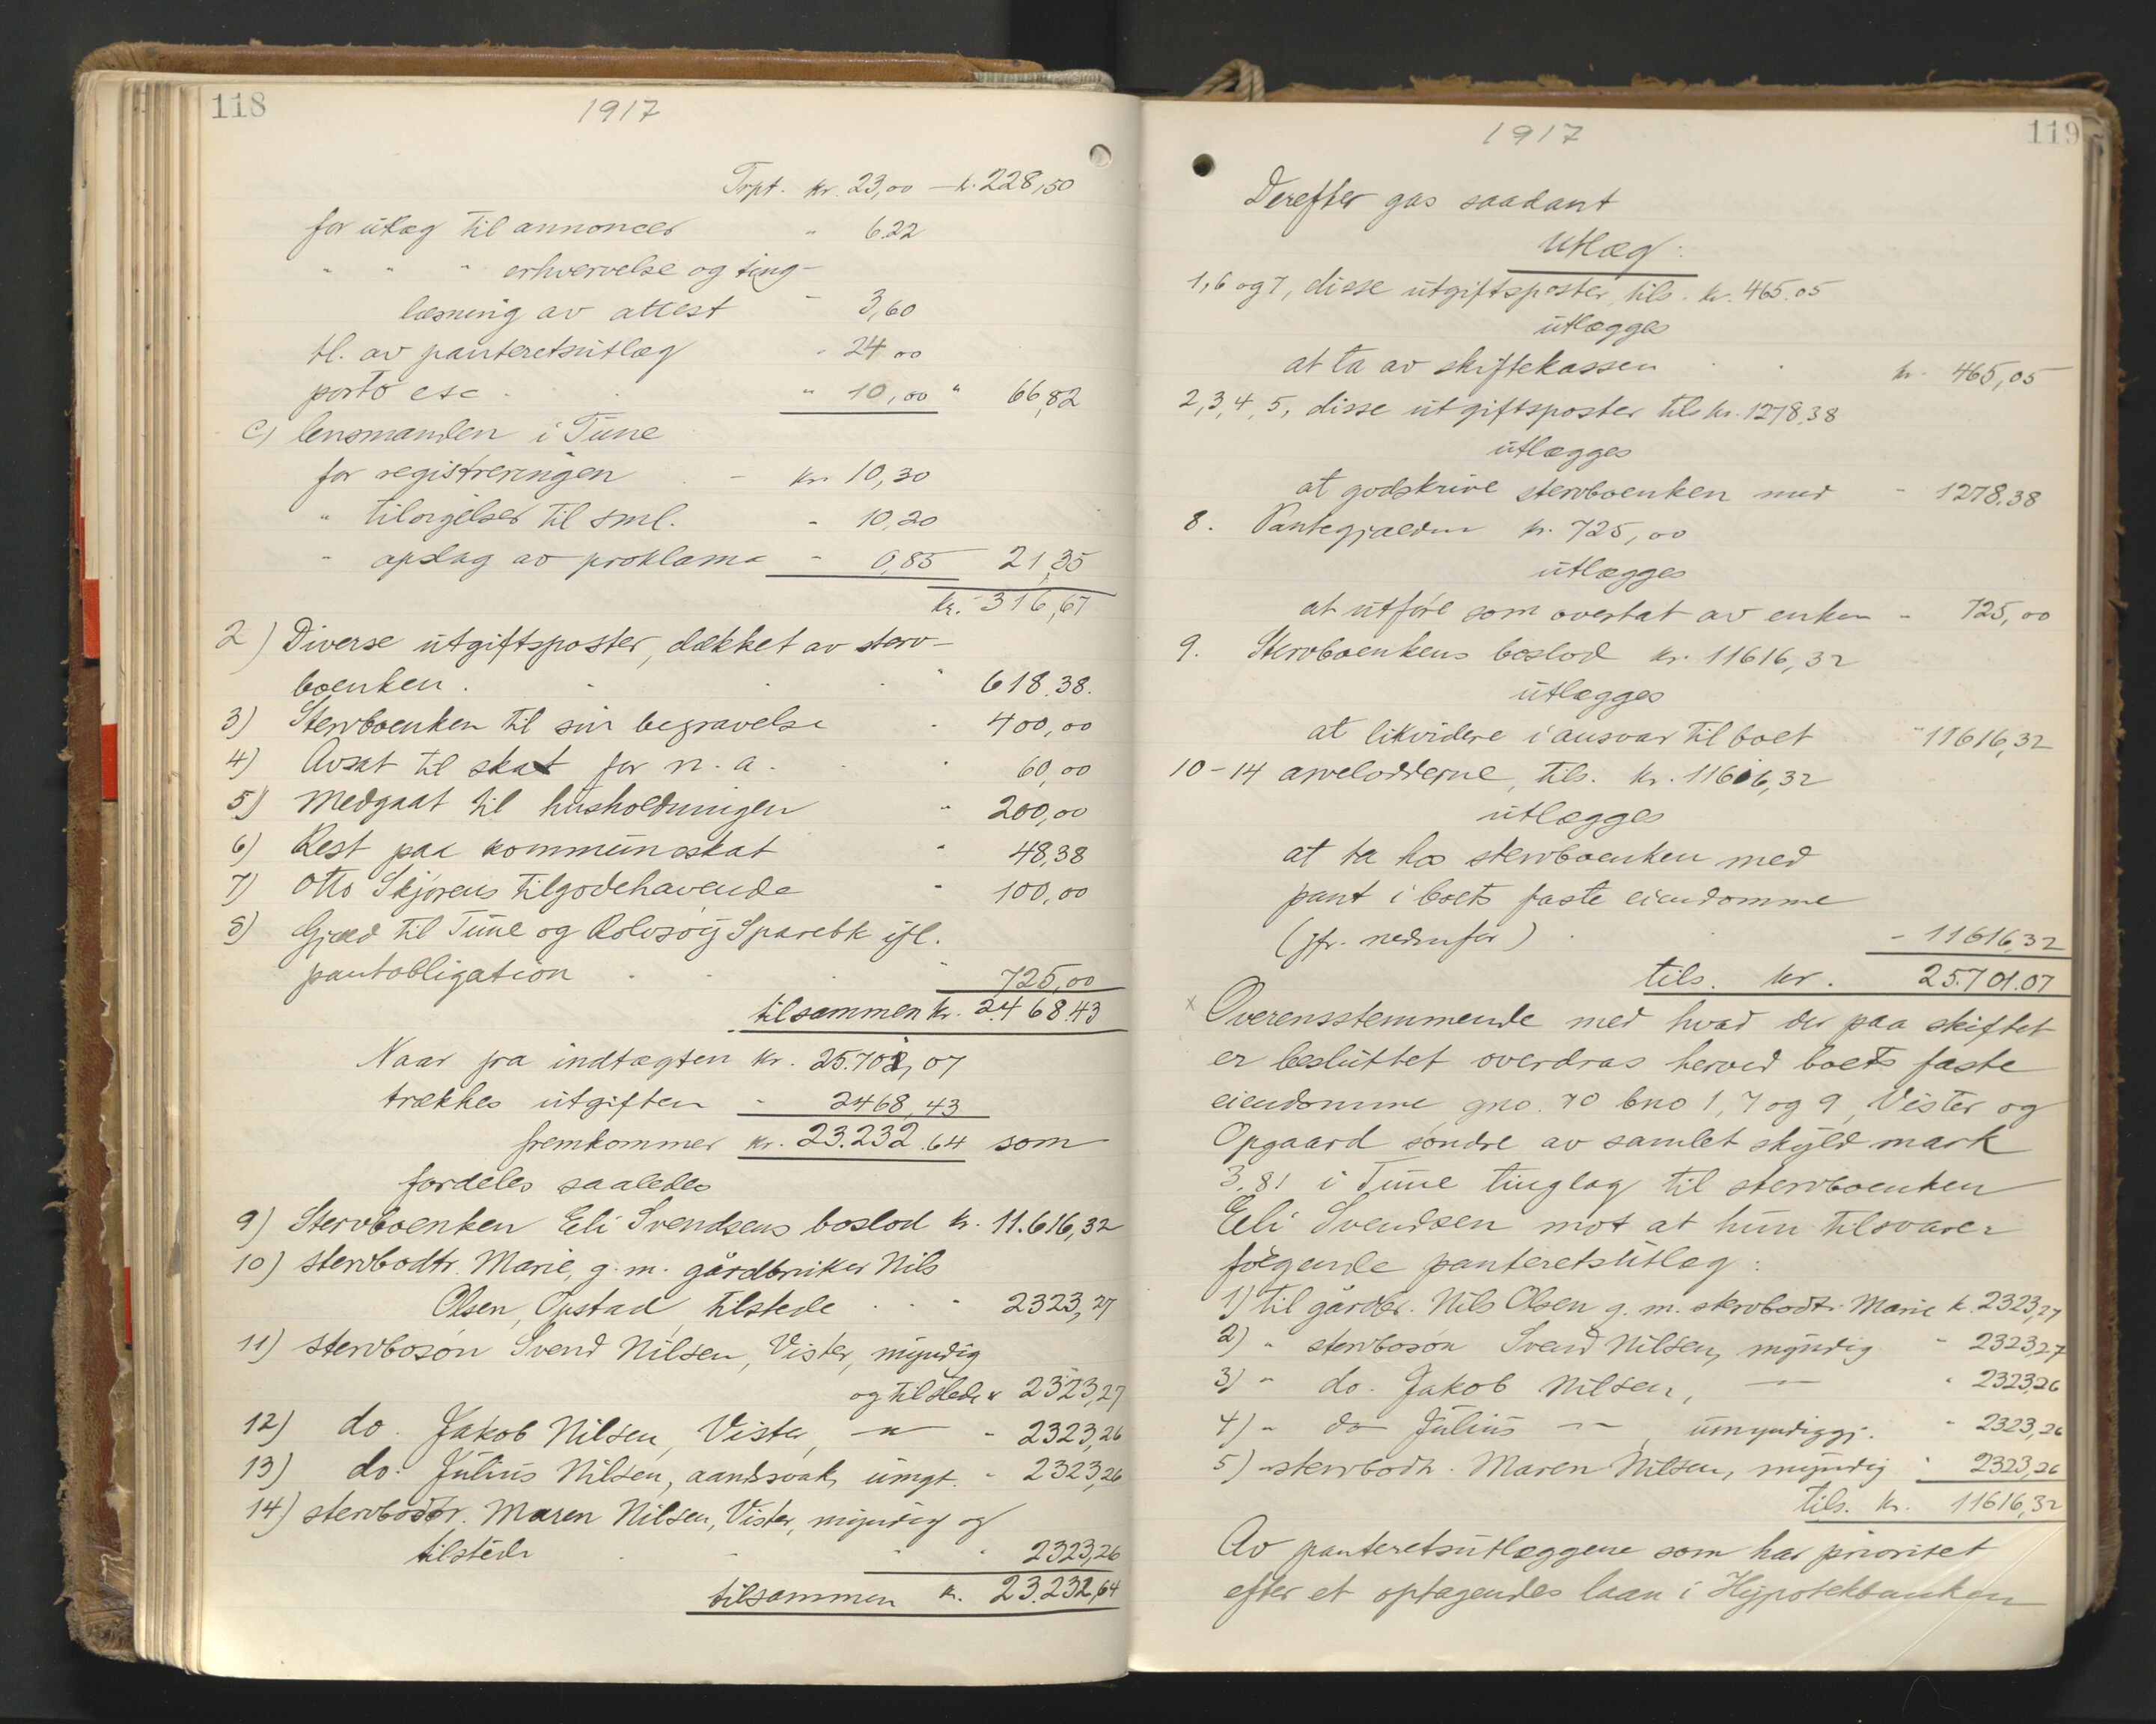 118
1917
Trpt. kr. 23,00 – k. 228,50
for utlæg til annoncer " 6.22
" " " erhvervelse og ting-
læsning av attest - 3,60
tl. av panteretsutlæg " 24 00
porto etc . " 10,00 " 66,82
c) lensmanden i Tune
for registreringen . - kr. 10,30
" tilsigelser til sml. - 10,20
" opslag av proklama - 0,85 21,35
kr. 316,67
2) Diverse utgiftsposter, dækket av sterv-
boenken . " 618.38.
3) Stervboenken til sin begravelse - 400,00
4) Avsat til skat for n. a. " 60,00
5) Medgaat til husholdningen " 200,00
6) Rest paa kommuneskat " 48,38
7) Otto Skjørens tilgodehavende - 100,00
8) Gjæld til Tune og Rolvsøy Sparebk ifl.
pantobligation " 725,00
tilsammen kr. 2468.43
Naar fra indtægten kr. 25.701,07
trækkes utgiften - 2468,43
fremkommer kr. 23.232.64 som
fordeles saaledes
9) Stervboenken Eli Svendsens boslod kr. 11.616,32
10) stervbodtr. Marie, g. m. gårdbruker Nils
Olsen, Opstad, tilstede . . " 2323,27
11) stervbosøn Svend Nilsen, Vister, myndig
og tilstede " 2323,27
12) do. Jakob Nilsen, Vister, —"— - 2323,26
13) do. Julius Nilsen, aandssvak, umgt. - 2323,26
14) stervbodtr. Maren Nilsen, Vister, myndig og
tilstede " 2323,26
tilsammen kr. 23.232,64
1917
119
Derefter gas saadant
Utlæg:
1, 6 og 7, disse utgiftsposter, tils. kr. 465.05
utlægges
at ta av skiftekassen . . kr. 465,05
2, 3, 4, 5, disse utgiftsposter tils kr. 1278.38
utlægges
at godskrive stervboenken med - 1278.38
8. Pantegjælden kr. 725,00
utlægges
at utføre som overtat av enken - 725,00
9. Stervboenkens boslod kr. 11616,32
utlægges
at likvidere i ansvar til boet " 11616,32
10-14 arvelodderne, tils. kr. 11616,32
utlægges
at ta hos stervboenken med
pant i boets faste eiendomme
(jfr. nedenfor) . . - 11616,32
tils. kr. 25.701.07
x Overensstemmende med hvad der paa skiftet
er besluttet overdras herved boets faste
eiendomme gno. 70 bno 1, 7 og 9, Vister og
Opgaard søndre av samlet skyld mark
3,81 i Tune tinglag til stervboenken
Eli Svendsen mot at hun tilsvarer
følgende panteretsutlæg:
1) til gårdbr. Nils Olsen g. m. stervbodtr. Marie k. 2323,27
2) " stervbosøn Svend Nilsen, myndig - 2323,27
3) " do. Jakob Nilsen, —"— " 2323,26
4) " do Julius —"—, umyndiggj. " 2323,26
5) " stervbodtr. Maren Nilsen, myndig " 2323,26
tils. kr. 11616,32
Av panteretsutlæggene som har prioritet
efter et optagendes laan i Hypotekbanken